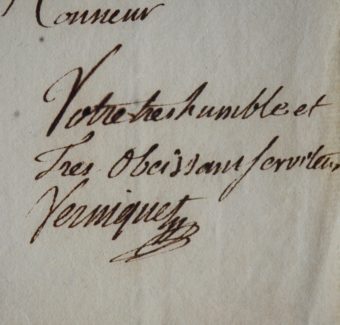 honneur
Votre tres humble et
Tres Obeissant serviteur
Verniquet